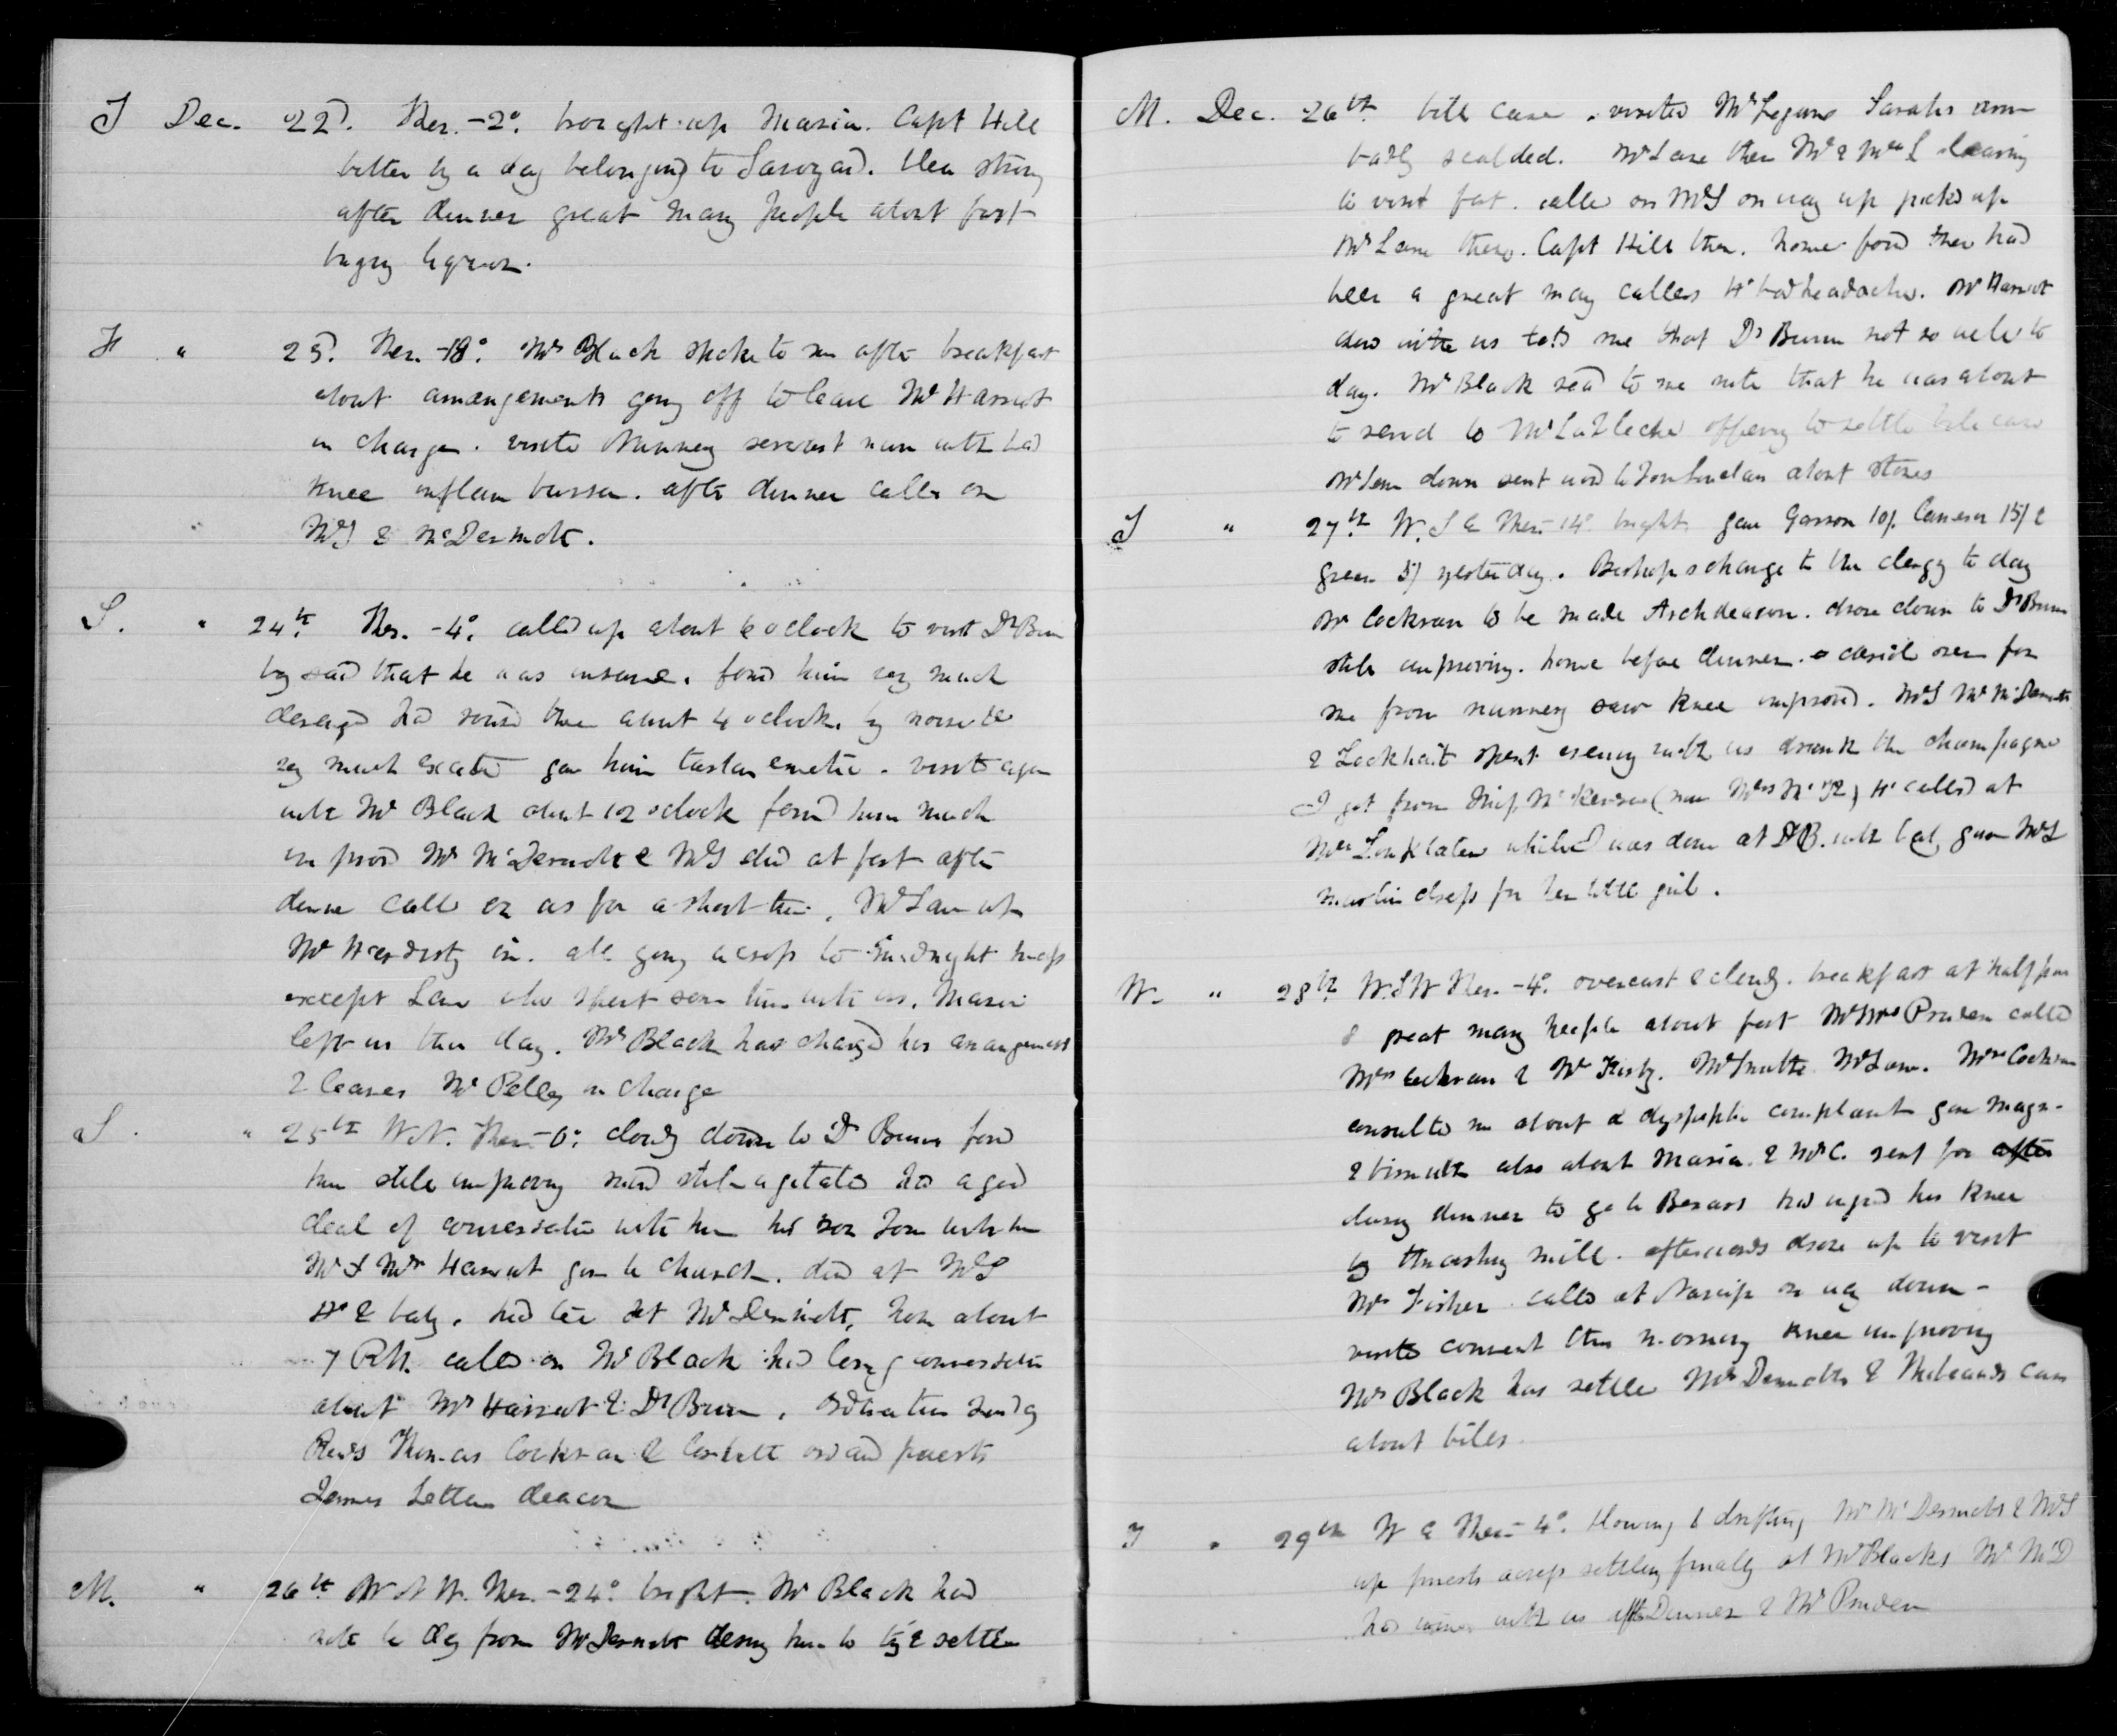 T Dec. 22d. Ther. -2°. brought up Maria. Capt Hill
bitten by a dog belonging to Savoyard.
after dinner great many people about fort
buying liquor.
F " 23d. Ther. -18°. Mr Black spoke to me after breakfast
about arrangements going off to leave Mr Harriot
in charge. visited Nunnery servant man with bad
knee inflam bursa. after dinner called on
McL & McDermott.
S. " 24th. Ther. -4°. called up about 6 oclock to visit Dr Bunn
by said that he was insane. found him very much
deranged had roused them about 4 oclock by noise &c
very much excited gave him tartar emetic. visited again
with Mr Black about 12 oclock found him much
improved Mr McDermott & McL dined at fort after
dinner called on us for a short time. Mr Lane up
Mr Hardisty in. all going across to midnight mass
except Lane who spent some time with us. Maria
left us this day. Mr Black has changed his arrangements
& leaves Mr Pelly in charge
S. " 25th W.N. Ther. -6°. cloudy down to Dr Bunn found
him still improving mind still agitated had a good
deal of conversation with him his son Tom with him
Mr & Mrs Harriot gone to Church. dined at McL
Hr & baby. had tea at McDermott, home about
7 P.M. called on Mr Black had long conversation
about Mr Harriot & Dr Bunn. Ordination Sunday
Revds Thomas Cockran & Corbett ordained priests
James Settee deacon
M. " 26th W N W. Ther. -24°. bright. Mr Black had
note to day from McDermott desiring him to try & settle
M. Dec. 26th bill case. visited Mr Sarahs arm
badly scalded. Mr Lane there Mr & Mrs L leaving
to visit fort. called on McL on way up picked up
Mr Lane there. Capt Hill there. home found there had
been a great many callers Hr bad headache. Mr Harriot
dined with us told me that Dr Bunn not so well to
day. Mr Black read to me note that he was about
to send to Mr Laflèche offering to settle bill case
Mr Lane down sent word to Tom Sinclair about stores
T " 27th W.S & Ther. -14° bright gave Garson 10/. Cameron 15/ &
Green 5/ yesterday. Bishops charge to the clergy to day
Mr Cockran to be made Archdeacon. drove down to Dr Bunn
still improving. home before dinner. over for
me from nunnery saw knee improved. McL Mr McDermott
& Lockhart spent evening with us drank the champagne
I got from Miss McKenzie (now Mrs ) Hr called at
Mrs Linklater while I was down at Dr B. with baby gave McL
muslin dress for her little girl.
W. " 28th W.S W Ther. -4°. overcast & cloudy. breakfast at half past
8 great many people about fort Mr Mrs Pruden called
Mrs Cockran & Mr Kirkby. Mr Smith Mr Lane. Mrs Cockran
consulted me about a dyspeptic complaint gave magn-
& bismuth also about Maria. & Mr C. sent for after
during dinner to go to had injured his knee
by thrashing mill. afterwards drove up to visit
Mr Fisher. called at on way down -
visited convent this morning knee improving
Mr Black has settled McDermotts & Thibeaults case
about bills.
T " 29th W & Ther. -4°. blowing & drifting Mr McDermott & McL
up priests across settling finally at Mr Blacks Mr McD
had with us after Dinner & Mr Pruden